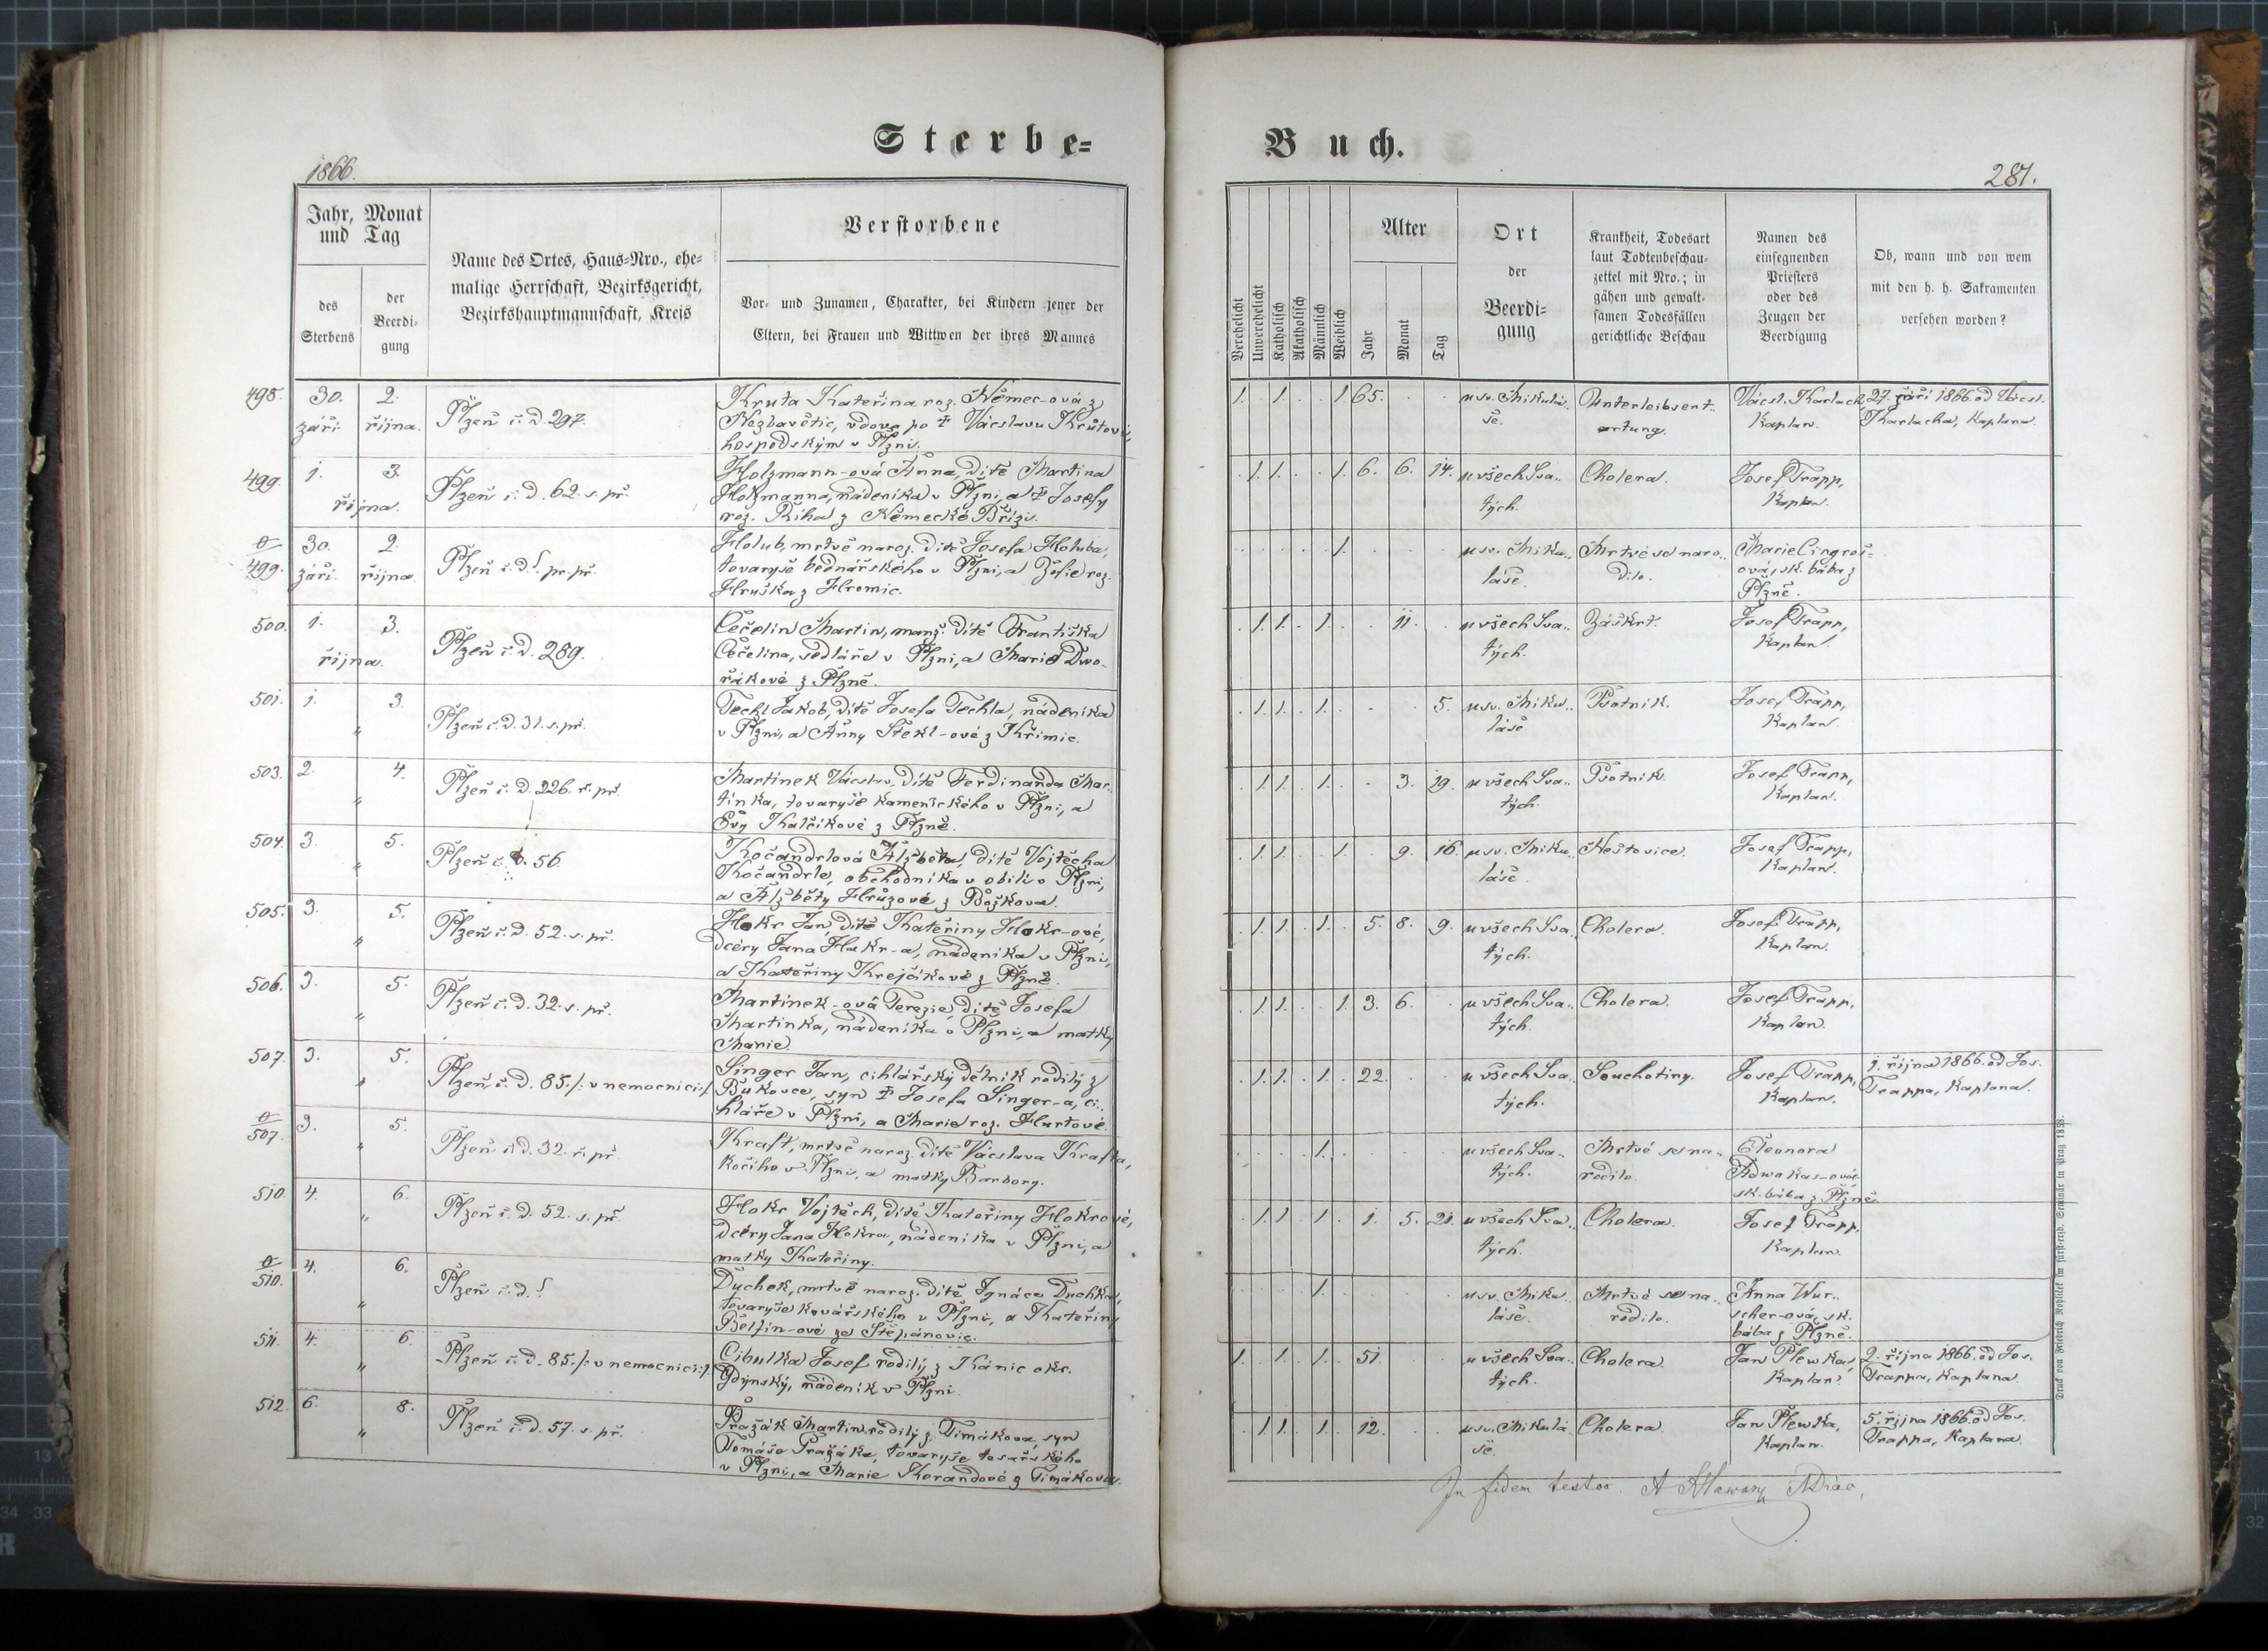 Sterbe-
Buch.
1866.
281.
Jahr, Monat
und Tag
des
Sterbens
der
Beerdi-
gung
Name des Ortes, Haus-Nro., ehe-
malige Herrschaft, Bezirksgericht,
Bezirkshauptmannschaft, Kreis
Verstorbene
Vor- und Zunamen, Charakter, bei Kindern jener der
Eltern, bei Frauen und Wittwen der ihres Mannes
Verehelicht
Unverehelicht
Katholisch
Akatholisch
Männlich
Weiblich
Alter
Jahr
Monat
Tag
Ort
der
Beerdi-
gung
Krankheit, Todesart
laut Todtenbeschau-
zettel mit Nro.; in
gähen und gewalt-
samen Todesfällen
gerichtliche Beschau
Namen des
einsegnenden
Priesters
oder des
Zeugen der
Beerdigung
Ob, wann und von wem
mit den h. h. Sakramenten
versehen worden?
498. 30. září 2. října. Plzeň č. d. 297.
Kruta Kateřina roz. Němec-ová z
Nezbavětic, vdova po † Václavu Krutovi,
hospodským v Plzni.
1. 1. 1. 65. u sv. Mikulá..
še.
Unterleibsent..
artung.
Vácsl. Karlach,
Kaplan.
27. září 1866. od Vácsl.
Karlacha, Kaplana.
499. 1. 3. října. Plzeň č. d. 62. s. př.
Holzmann-ová Anna, dítě Martina
Holzmanna, nádeníka v Plzni, a † Josefy
roz. Říha z Německé Břízi.
1. 1. 1. 6. 6. 14. u všech Sva..
tých.
Cholera.
Josef Trapp,
Kaplan.
0/499. 30. září 2. října Plzeň č. d. ! pr. př.
Holub, mrtvě naroz. dítě Josefa Holuba,
tovaryše bednářského v Plzni, a Žofie roz.
Hruška z Hromic.
1. u sv. Miku..
láše.
Mrtvé se naro..
dilo.
Marie Cingroš-
ová, sk. bába z
Plzně.
500. 1. 3. října. Plzeň č. d. 289.
Čečelin Martin, manž. dítě Františka
Čečelina, sedláře v Plzni, a Marie Dwo-
řákové z Plzně.
1. 1. 1. 11. u všech Sva..
tých.
Záškrt.
Josef Trapp,
Kaplan.
501. 1. 3. " Plzeň č. d. 31. s. př.
Techl Jakob, dítě Josefa Techla, nádeníka
v Plzni, a Anny Štekl-ové z Křimic.
1. 1. 1. 5. u sv. Miku..
láše.
Psotník.
Josef Trapp,
Kaplan.
503. 2. 4. " Plzeň č. d. 226. ř. př.
Martinek Václav, dítě Ferdinanda Mar..
tinka, tovaryše kamenického v Plzni, a
Evy Kalčíkové z Plzně.
1. 1. 1. 3. 19. u všech Sva..
tých.
Psotník.
Josef Trapp,
Kaplan.
504. 3. 5. " Plzeň č. d. 56.
Kočandrlová Alžběta, dítě Vojtěcha
Kočandrle, obchodníka v obilí v Plzni,
a Alžběty Hrůzové z Božkova.
1. 1. 1. 9. 16. u sv. Miku..
láše.
Neštovice.
Josef Trapp,
Kaplan.
505. 3. 5. " Plzeň č. d. 52. s. př.
Hokr Jan, dítě Kateřiny Hokr-ové,
dcery Jana Hokr-a, nádeníka v Plzni,
a Kateřiny Krejčíkové z Plzně.
1. 1. 1. 5. 8. 9. u všech Sva..
tých.
Cholera.
Josef Trapp,
Kaplan.
506. 3. 5. " Plzeň č. d. 32. s. př.
Martinek-ová Terezie, dítě Josefa
Martinka, nádeníka v Plzni, a matky
Marie.
1. 1. 1. 3. 6. u všech Sva..
tých.
Cholera.
Josef Trapp,
Kaplan.
507. 3. 5. " Plzeň č. d. 85. /: v nemocnici :/
Singer Jan, cihlářský dělník rodilý z
Bukovce, syn † Josefa Singer-a, ci..
hláře v Plzni, a Marie roz. Hurtové.
1. 1. 1. 22. u všech Sva..
tých.
Souchotiny.
Josef Trapp,
Kaplan.
1. října 1866. od Jos.
Trappa, Kaplana.
0/507. 3. 5. " Plzeň č. d. 32. ř. př.
Kraft, mrtvě naroz. dítě Václava Krafta,
kočího v Plzni, a matky Barbory.
1. u všech Sva..
tých.
Mrtvé se na..
rodilo.
Eleonora
Adwokas-ová
sk. bába z Plzně
510. 4. 6. " Plzeň č. d. 52. s. př.
Hokr Vojtěch, dítě Kateřiny Hokrové,
dcery Jana Hokra, nádeníka v Plzni, a
matky Kateřiny.
1. 1. 1. 1. 5. 21. u všech Sva..
tých.
Cholera.
Josef Trapp,
Kaplan.
0/510. 4. 6. " Plzeň č. d. !
Duchek, mrtvě naroz. dítě Ignáce Duchka,
tovaryše kovářského v Plzni, a Kateřiny
Belfin-ové ze Štěpánovic.
1. u sv. Miku..
láše.
Mrtvé se na..
rodilo.
Anna Wur..
scher-ová, sk.
bába z Plzně.
511. 4. 6. " Plzeň č. d. 85. /: v nemocnici :/
Cibulka Josef rodilý z Kanic okr.
Gdýnský, nádeník v Plzni.
1. 1. 1. 51. u všech Sva..
tých.
Cholera.
Jan Plewka,
Kaplan.
2. října 1866. od Jos.
Trappa, Kaplana.
512. 6. 8. " Plzeň č. d. 57. s. př.
Pražák Martin rodilý z Timákova, syn
Tomáše Pražáka, tovaryše tesařského
v Plzni, a Marie Korandové z Timákova.
1. 1. 1. 12. u sv. Mikulá
še.
Cholera.
Jan Plewka,
Kaplan.
5. října 1866. od Jos.
Trappa, Kaplana.
In fidem testor.
Druck von Friedrich Rohliček im fürsterzb. Seminär in Prag 1858.